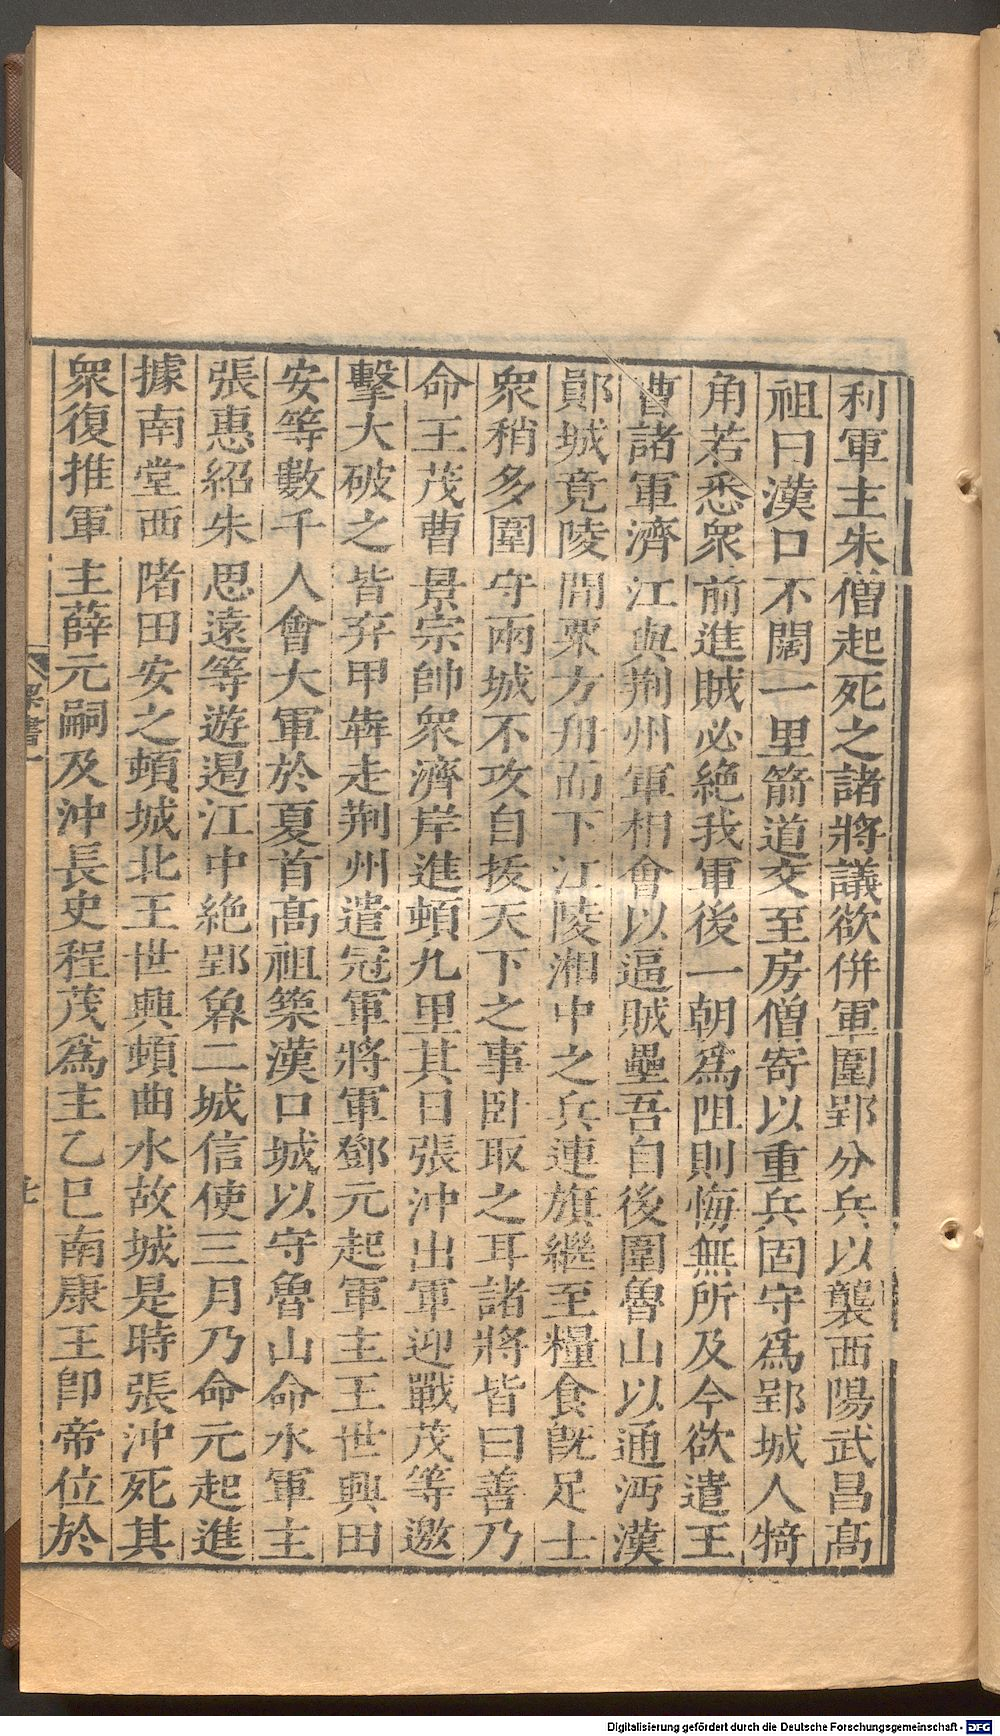 利軍主朱僧起死之諸將議欲併軍圍郢分兵以襲西陽武昌高
祖曰漢口不闊一里箭道交至房僧寄以重兵固守爲郢城人犄
角若悉衆前進賊必絶我軍後一朝爲阻則悔無所及今欲遣王
曹諸軍濟江與荆州軍相會以逼賊壘吾自後圍魯山以通沔漢
鄖城竟陵間粟方舟而下江陵湘中之兵連旗繼至糧食旣足士
衆稍多圍守兩城不攻自拔天下之事卧取之耳諸將皆曰善乃
命王茂曹景宗帥衆濟岸進頓九里其日張沖出軍迎戰茂等邀
擊大破之皆弃甲犇走荆州遣冠軍將軍鄧元起軍主王世興田
安等數千人會大軍於夏首高祖築漢口城以守魯山命水軍主
張惠紹朱思遠等遊遏江中絶郢魯二城信使三月乃命元起進
據南堂西陼田安之頓城北王世興頓曲水故城是時張沖死其
衆復推軍主薛元嗣及沖長史程茂爲主乙巳南康王卽帝位於
梁書一
七
Digitalisierung gefördert durch die Deutsche Forschungsgemeinschaft - DFG